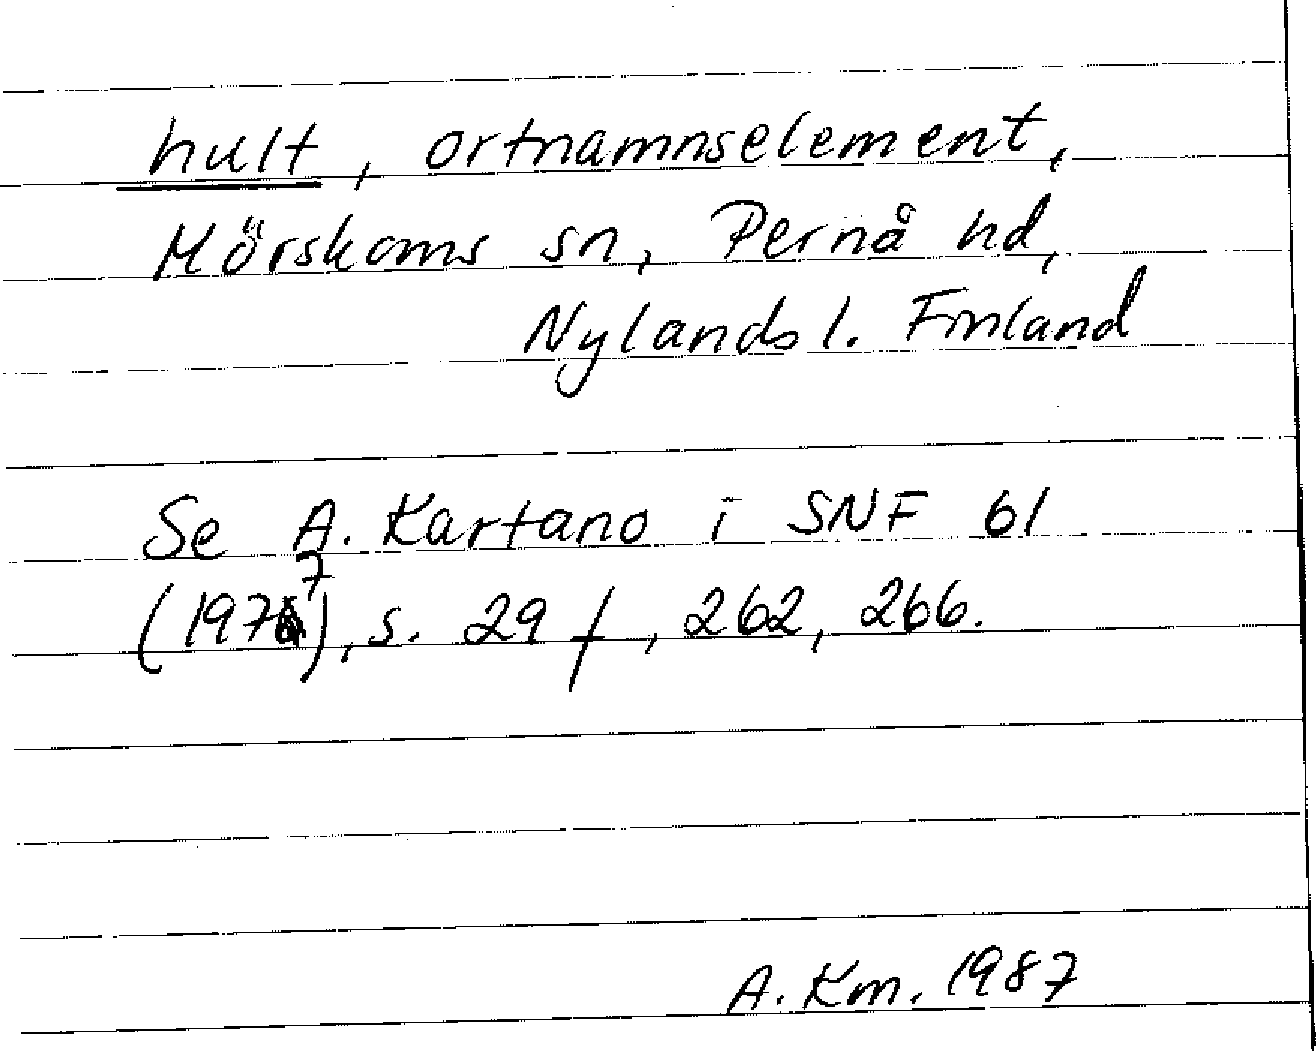 hult, ortnamnselement,
Mörskoms sn, Pernå hd,
Nylands l. Finland
Se A. Kartano i SNF 61
(1977), s. 29 f, 262, 266.
A. Km. 1987